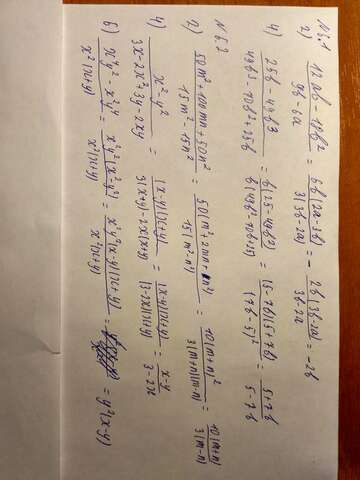 №5.1
2) 12ab - 18b² / 9b - 6a = 6b(2a-3b) / 3(3b-2a) = - 2b(3b-2a) / 3b-2a = -2b
4) 25b - 49b³ / 49b³ - 70b² + 25b = b(25-49b²) / b(49b²-70b+25) = (5-7b)(5+7b) / (7b-5)² = 5+7b / 5-7b
№5.2
2) 50m² + 100mn + 50n² / 15m² - 15n² = 50(m²+2mn+n²) / 15(m²-n²) = 10(m+n)² / 3(m+n)(m-n) = 10(m+n) / 3(m-n)
4) x²-y² / 3x-2x²+3y-2xy = (x-y)(x+y) / 3(x+y)-2x(x+y) = (x-y)(x+y) / (3-2x)(x+y) = x-y / 3-2x
6) x⁴y² - x²y⁴ / x²(x+y) = x²y²(x²-y²) / x²(x+y) = x²y²(x-y)(x+y) / x²(x+y) = y²(x-y)